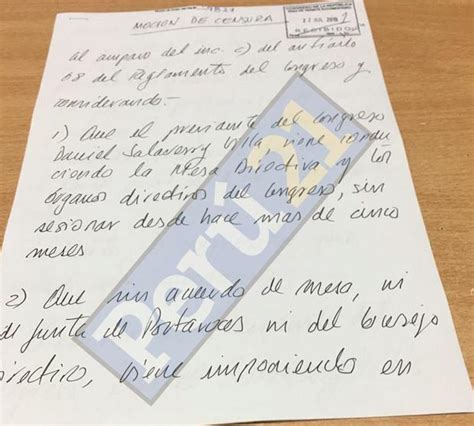 MOCION DE CENSURA
RECIBIDO
Al amparo del inc. c) del artículo
68 del Reglamento del Congreso y
considerando:-
1) Que el presidente del Congreso
Daniel Salaverry Villa viene condu
ciendo la Mesa Directiva y los
órganos directivos del Congreso, sin
sesionar desde hace mas de cinco
meses
2) Que sin acuerdo de mesa, ni
de Junta de Portavoces ni del Consejo
Directivo, viene imponiendo en
Perú 21